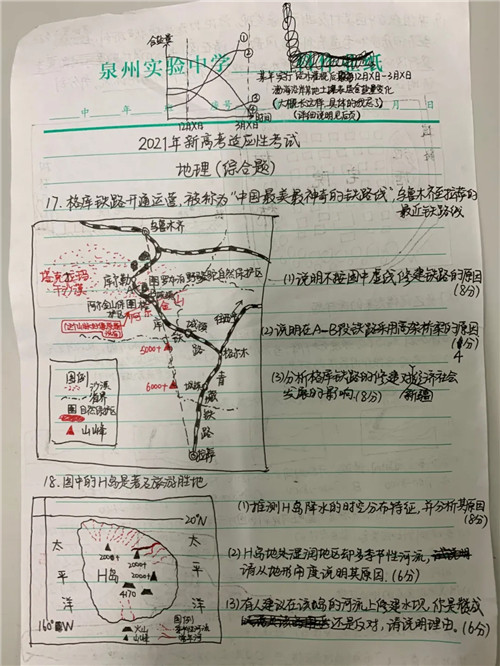 含盐量
①
②
③
④
时间
12月X日
3月X日
泉州实验中学
作业纸
12月X日-3月X日
渤海沿岸某地土壤表层含盐量变化
(大概长这样,具体的线忘了)
(详细说明见后页)
中 年 座号 月 日
2021年新高考适应性考试
地理(综合题)
17. 格库铁路开通运营,被称为“中国最美最神奇的铁路线”,乌鲁木齐至拉萨的
最近铁路线
乌鲁木齐
塔克拉玛
干沙漠
库尔勒
罗布泊野骆驼自然保护区
阿尔金山保
护区
5000+
6000+
格尔木
青
藏
铁
路
拉萨
图例
沙漠
省界
自然保护区
山峰
(1)说明不按图中虚线修建铁路的原因
(8分)
(2)说明在A-B段铁路采用高架桥梁的原因
4分)
(3)分析格库铁路的修建对经济社会
发展的影响.(8分) 新疆
18. 图中的H岛是著名旅游胜地
20°N
太
平
洋
H岛
2000+
2000+
2000+
4170
太
平
洋
160°W
图例
火山
山峰
季节性河流
常年河
(1)推测H岛降水的时空分布特征,并分析其原因
(8分)
(2)H岛地处湿润地区却多季节性河流,
请从地形角度说明其原因.(6分)
(3)有人建议在该岛的河流上修建水坝,你是赞成
还是反对,请说明理由。(6分)